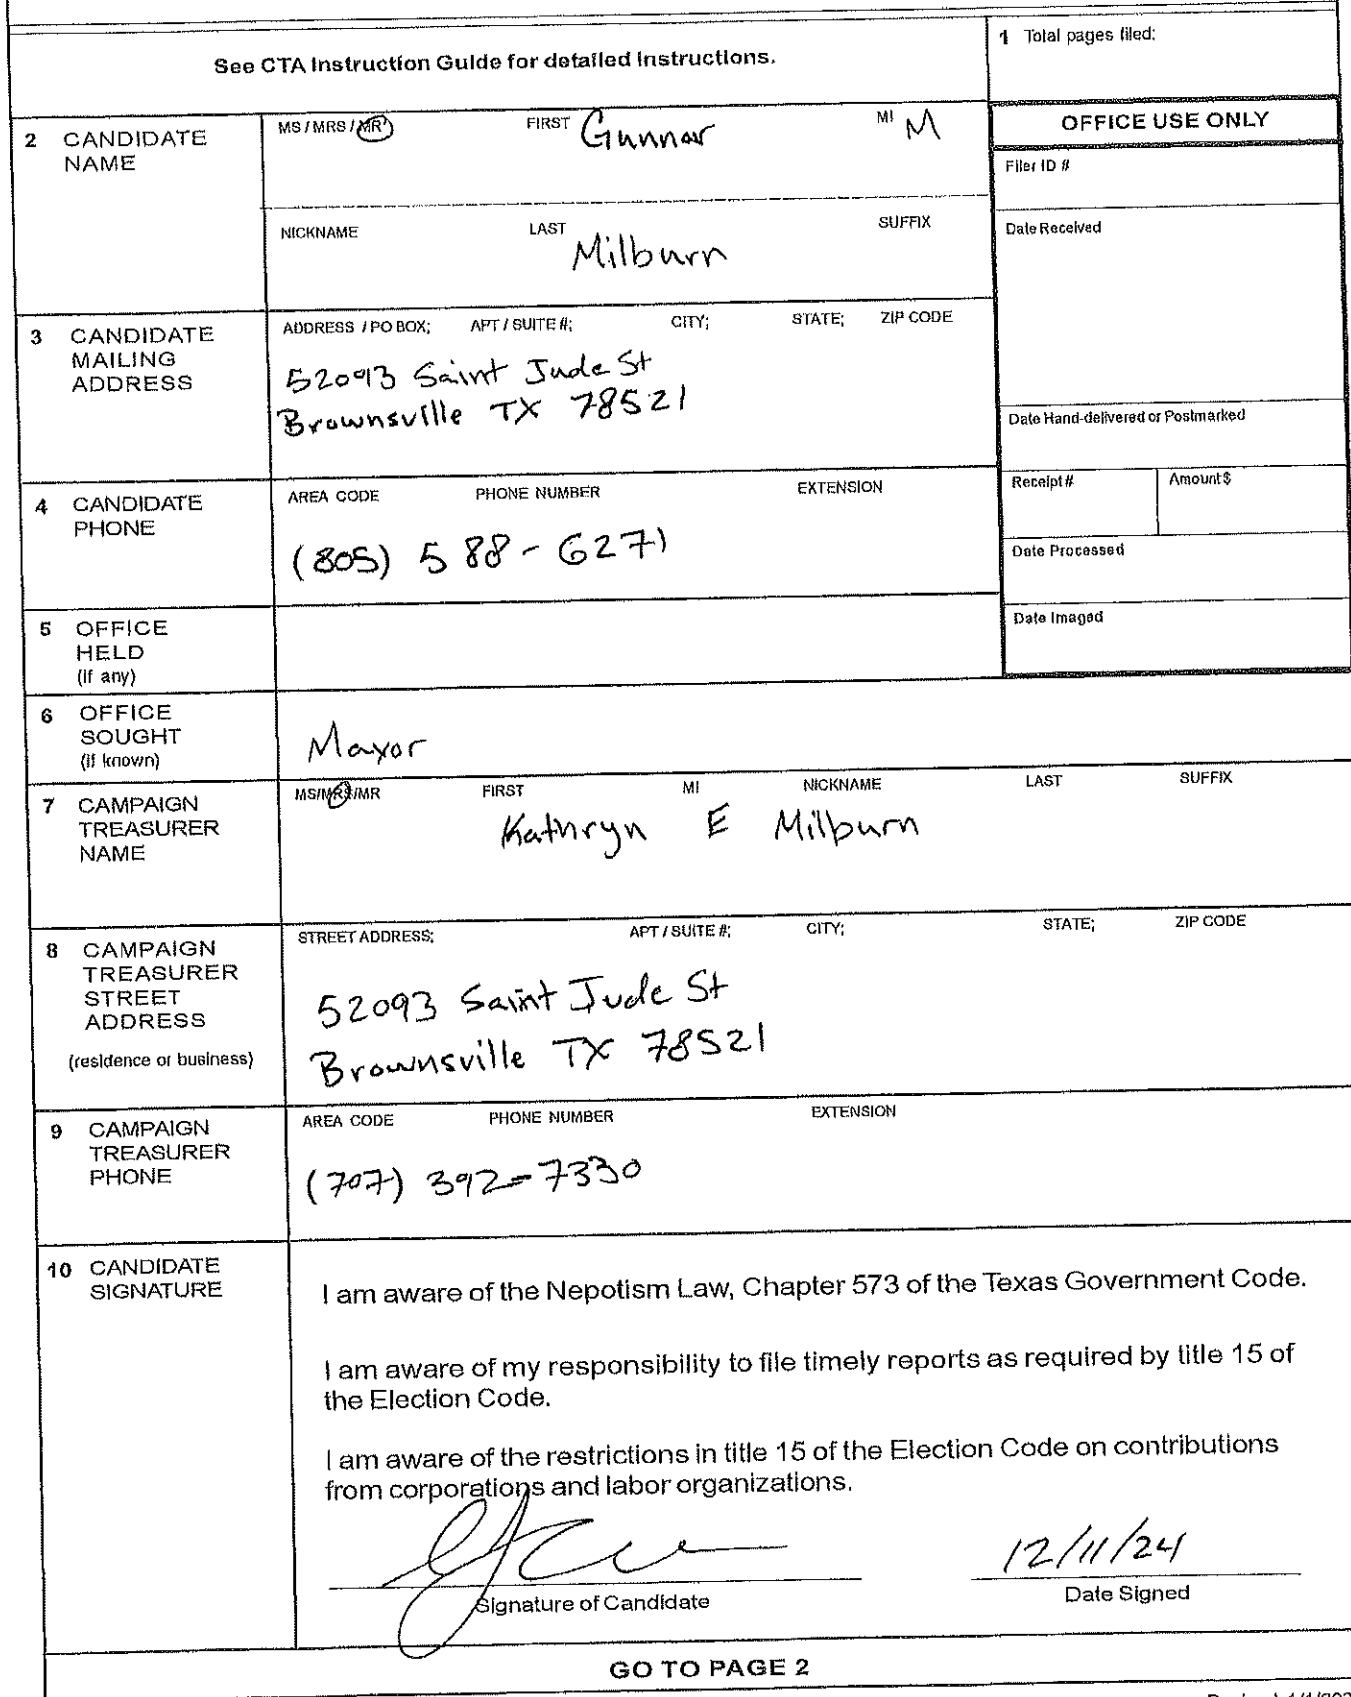 See CTA Instruction Guide for detailed instructions.
1 Total pages filed:
2 CANDIDATE NAME
MS / MRS / MR
FIRST Gunnar
MI M
NICKNAME
LAST Milburn
SUFFIX
OFFICE USE ONLY
Filer ID #
Date Received
3 CANDIDATE MAILING ADDRESS
ADDRESS / PO BOX; APT / SUITE #; CITY; STATE; ZIP CODE
52093 Saint Jude St
Brownsville TX 78521
Date Hand-delivered or Postmarked
4 CANDIDATE PHONE
AREA CODE PHONE NUMBER EXTENSION
(805) 588-6271
Receipt # Amount $
Date Processed
Date Imaged
5 OFFICE HELD
(if any)
6 OFFICE SOUGHT
(if known)
Mayor
7 CAMPAIGN TREASURER NAME
MS/MRS/MR FIRST MI NICKNAME LAST SUFFIX
Kathryn E Milburn
8 CAMPAIGN TREASURER STREET ADDRESS
(residence or business)
STREET ADDRESS; APT / SUITE #; CITY; STATE; ZIP CODE
52093 Saint Jude St
Brownsville TX 78521
9 CAMPAIGN TREASURER PHONE
AREA CODE PHONE NUMBER EXTENSION
(707) 392-7330
10 CANDIDATE SIGNATURE
I am aware of the Nepotism Law, Chapter 573 of the Texas Government Code.
I am aware of my responsibility to file timely reports as required by title 15 of
the Election Code.
I am aware of the restrictions in title 15 of the Election Code on contributions
from corporations and labor organizations.
12/11/24
Signature of Candidate
Date Signed
GO TO PAGE 2